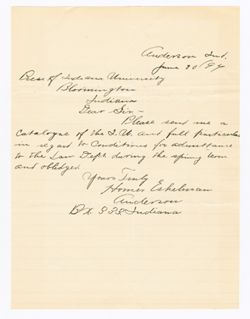 Anderson Ind.
June 20/94
Pres of Indiana University
Bloomington
Indiana
Dear Sir -
Please send me a
catalogue of the I. U. and full particulars
in regard to Conditions for admittance
to the Law Dept during the spring term
and oblidged
Yours Truly
Homer Eshelman
Anderson
Bx Indiana